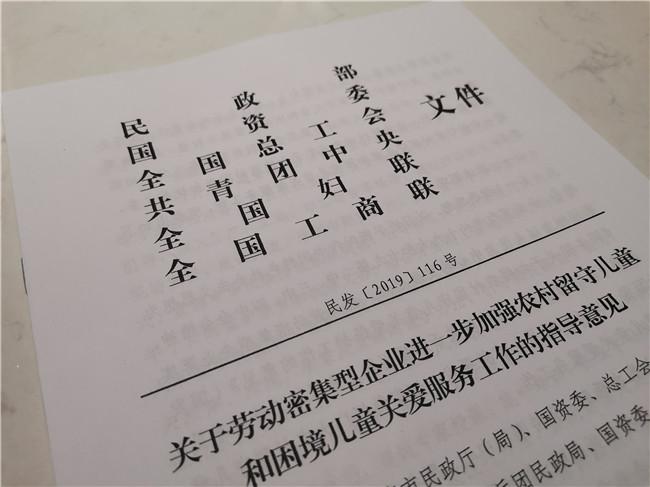 民政部
国资委
全国总工会
共青团中央
全国妇联
全国工商联
文件
民发〔2019〕116号
关于劳动密集型企业进一步加强农村留守儿童
和困境儿童关爱服务工作的指导意见
市民政厅（局）、国资委、总工会
兵团民政局、国资委